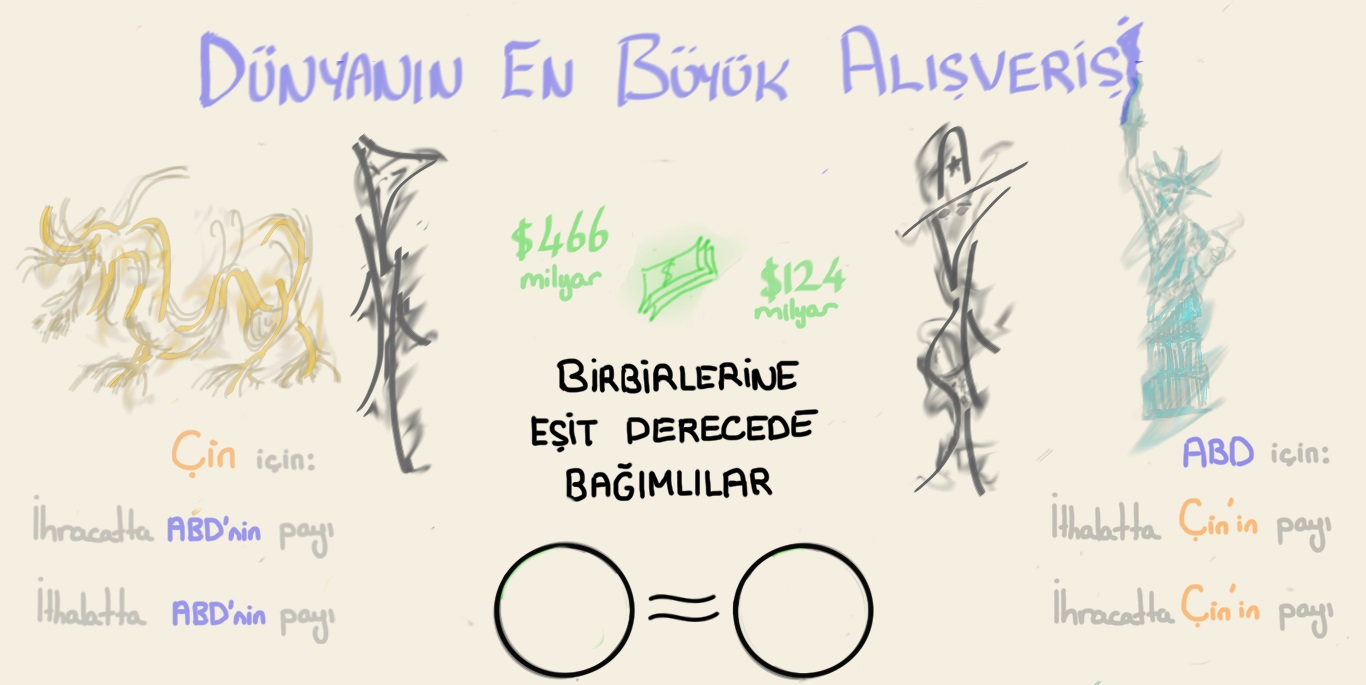 DÜNYANIN EN BÜYÜK ALIŞVERİŞİ
$466
milyar
$
$124
milyar
BİRBİRLERİNE
EŞİT DERECEDE
BAĞIMLILAR
Çin için:
İhracatta ABD'nin payı
İthalatta ABD'nin payı
ABD için:
İthalatta Çin'in payı
İhracatta Çin'in payı